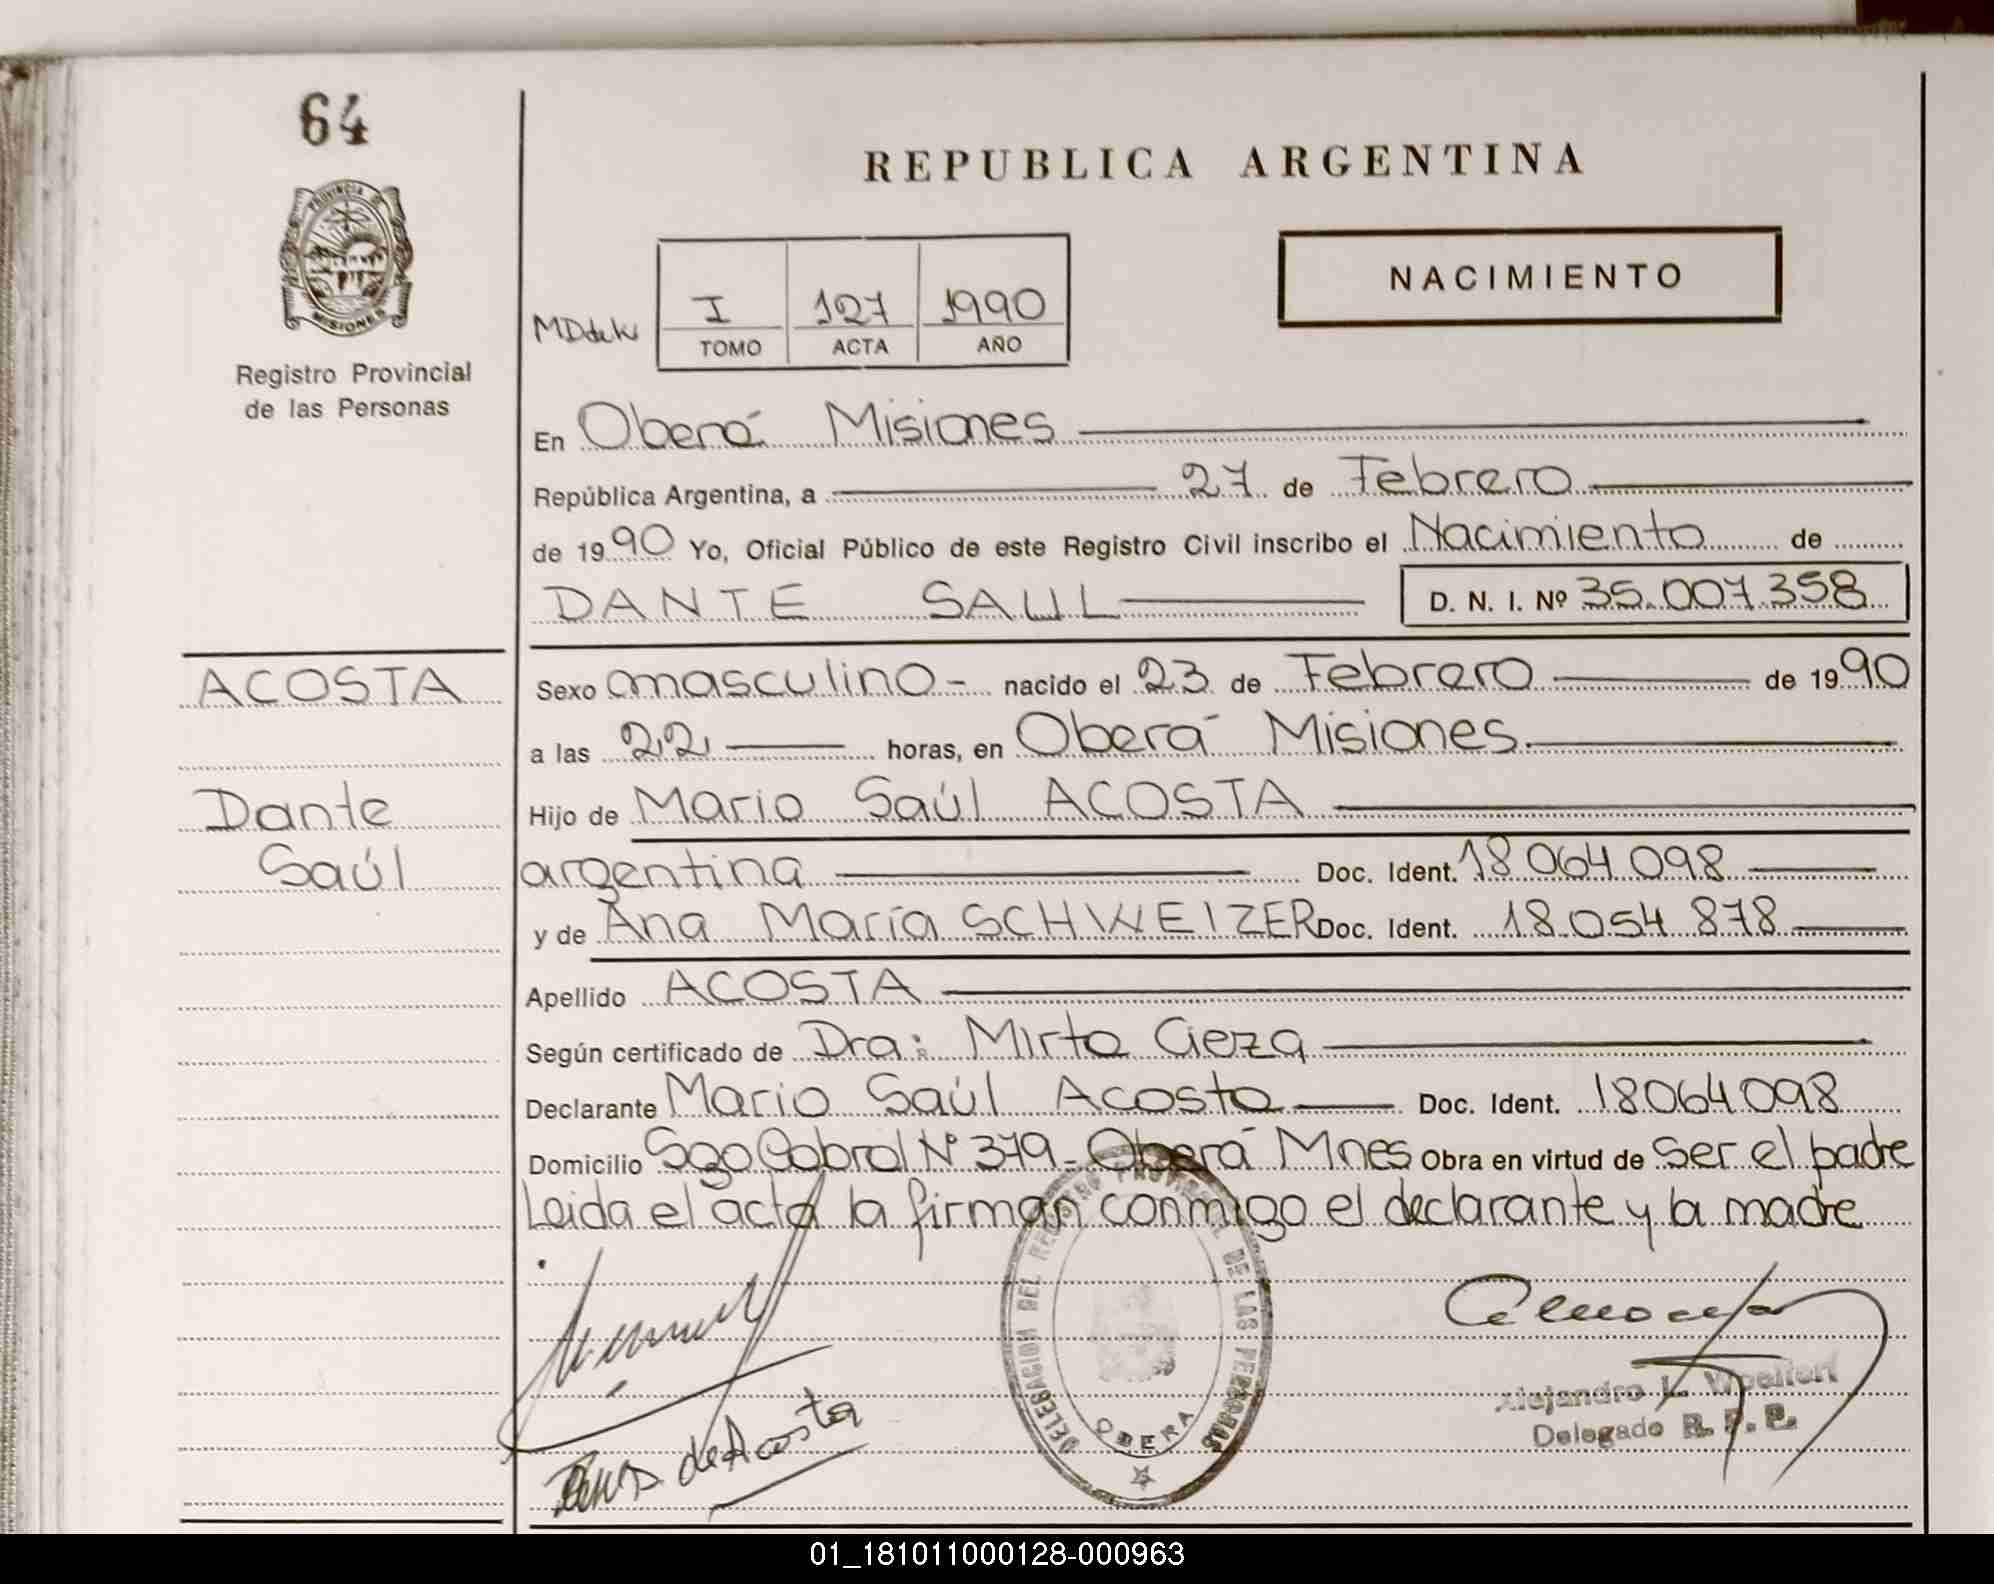 64
REPUBLICA ARGENTINA
PROVINCIA DE
MISIONES
Registro Provincial
de las Personas
I 127 1990
TOMO ACTA AÑO
NACIMIENTO
En Oberá Misiones
República Argentina, a 27 de Febrero
de 1990 Yo, Oficial Público de este Registro Civil inscribo el Nacimiento de
DANTE SAUL D. N. I. Nº 35.007.358
ACOSTA
Dante
Saúl
Sexo masculino - nacido el 23 de Febrero de 1990
a las 22 horas, en Oberá Misiones.
Hijo de Mario Saúl ACOSTA
argentina Doc. Ident. 18.064.098
y de Ana María SCHWEIZER Doc. Ident. 18.054.878
Apellido ACOSTA
Según certificado de Dra: Mirta Gieza
Declarante Mario Saúl Acosta Doc. Ident. 18064098
Domicilio Sgo Cabral Nº 379 - Oberá Mnes Obra en virtud de ser el padre
Leida el acta la firman conmigo el declarante y la madre
DELEGACION DEL REGISTRO PROVINCIAL DE LAS PERSONAS
OBERA
de Acosta
Alejandro L.
Delegado R. P. P.
01_181011000128-000963